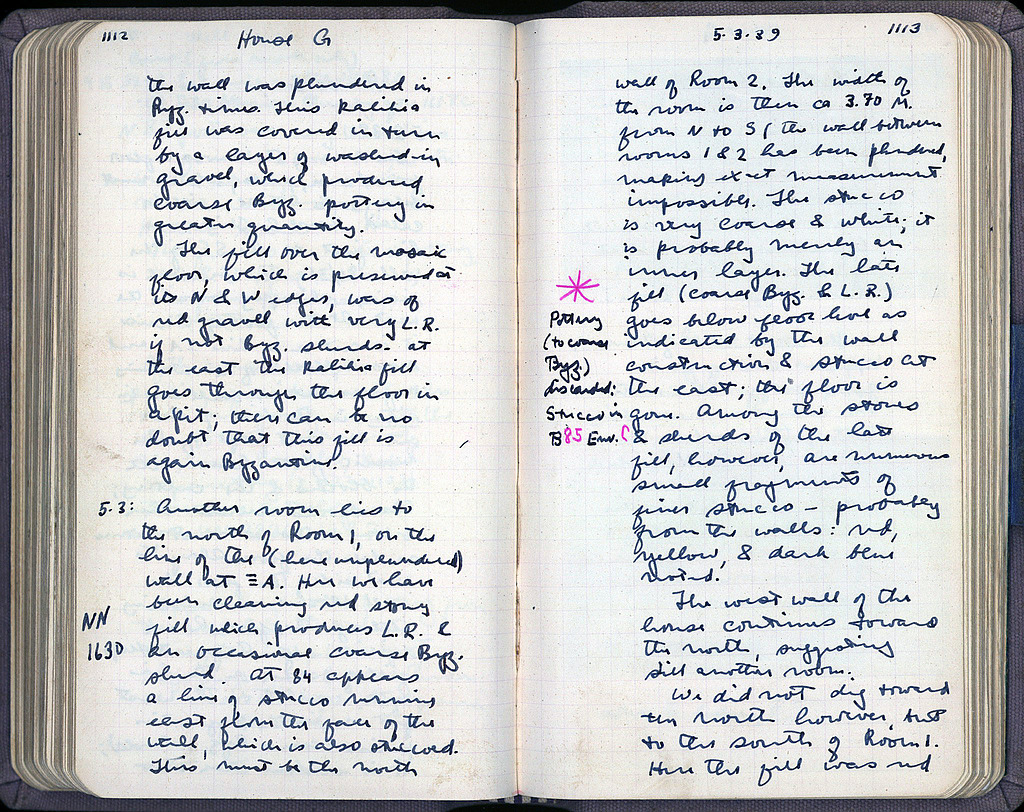 1112
House G
the wall was plundered in
Byz. times. This kalibia
fill was covered in turn
by a layer of washed-in
gravel, which produced
coarse Byz. pottery in
greater quantity.
The fill over the mosaic
floor, which is preserved at
its N & W edges, was of
red gravel with very L.R.
if not Byz. sherds. At
the east the kalibia fill
goes through the floor in
a pit; there can be no
doubt that this fill is
again Byzantine.
5.3: Another room lies to
the north of Room 1, on the
line of the (here unplundered)
wall at ΞA. Here we have
been cleaning red stony
NN
1630
fill which produces L.R. &
an occasional coarse Byz.
sherd. At 84 appears
a line of stucco running
east from the face of the
wall, which is also stuccoed.
This must be the north
5.3.39
1113
wall of Room 2. The width of
the room is then ca 3.70 M.
from N to S (the wall between
rooms 1 & 2 has been plundered,
making exact measurement
impossible. The stucco
is very coarse & white; it
is probably merely an
inner layer. The late
fill (coarse Byz. & L.R.)
goes below floor level as
indicated by the wall
construction & stucco at
the east; the floor is
gone. Among the stones
& sherds of the late
fill, however, are numerous
small fragments of
finer stucco – probably
from the walls: red,
yellow, & dark blue
noted.
*
Pottery
(to coarse
Byz.)
discarded;
Stucco in
B85 Env. C
The west wall of the
house continues toward
the north, suggesting
still another room.
We did not dig toward
the north however, but
to the south of Room 1.
Here the fill was red